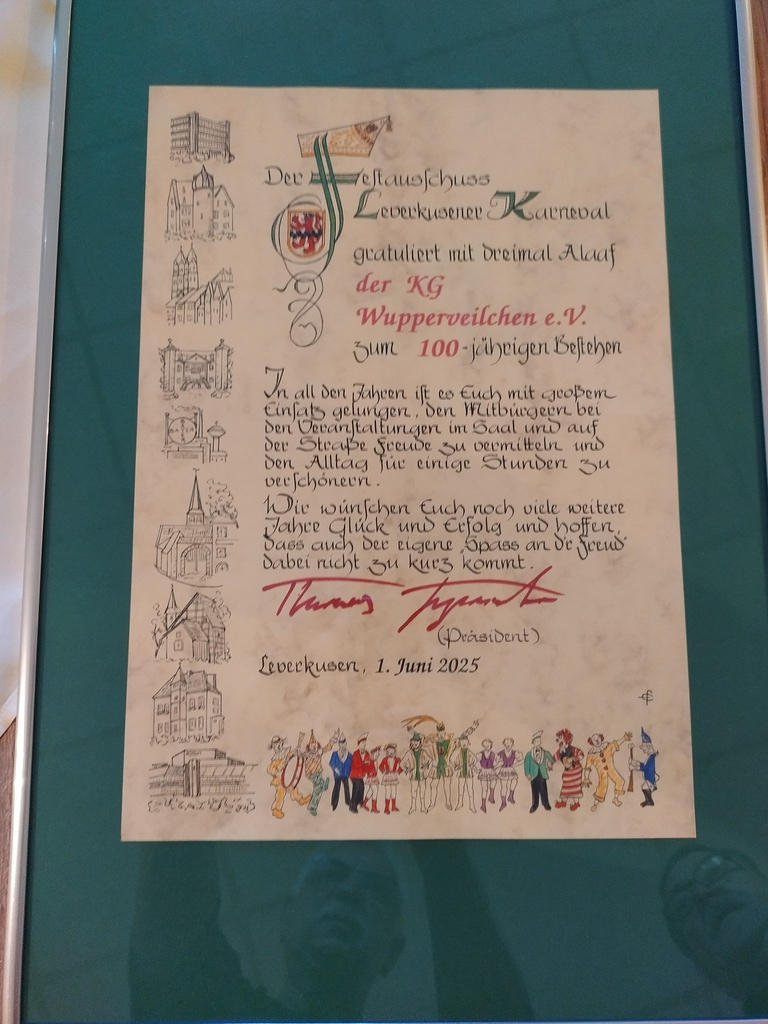 Der Festausschuss
Leverkusener Karneval
gratuliert mit dreimal Alaaf
der KG
Wupperveilchen e.V.
zum 100-jährigen Bestehen
In all den Jahren ist es Euch mit großem
Einsatz gelungen, den Mitbürgern bei
den Veranstaltungen im Saal und auf
der Straße Freude zu vermitteln und
den Alltag für einige Stunden zu
verschönern.
Wir wünschen Euch noch viele weitere
Jahre Glück und Erfolg und hoffen,
dass auch der eigene „Spass an d'r Freud“
dabei nicht zu kurz kommt.
Thomas
(Präsident)
Leverkusen, 1. Juni 2025